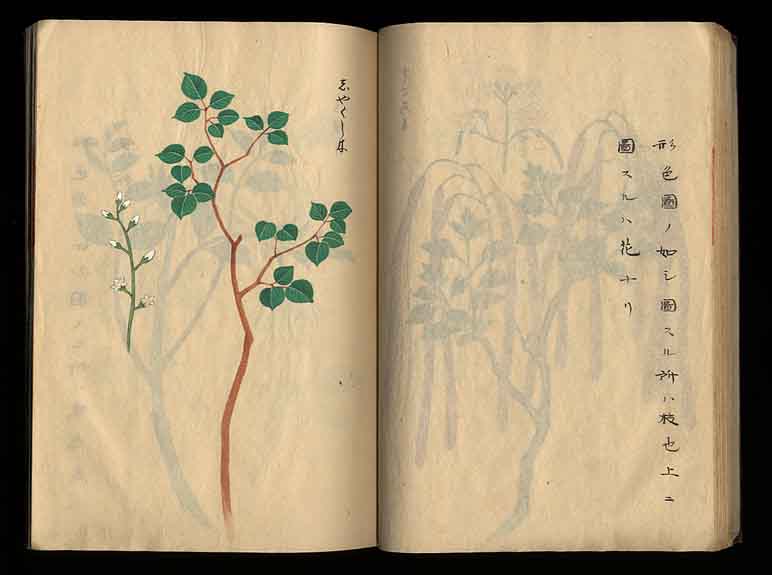 形色圖ノ如シ圖スル所ハ枝也上ニ
圖スルハ花ナリ
志やくし木